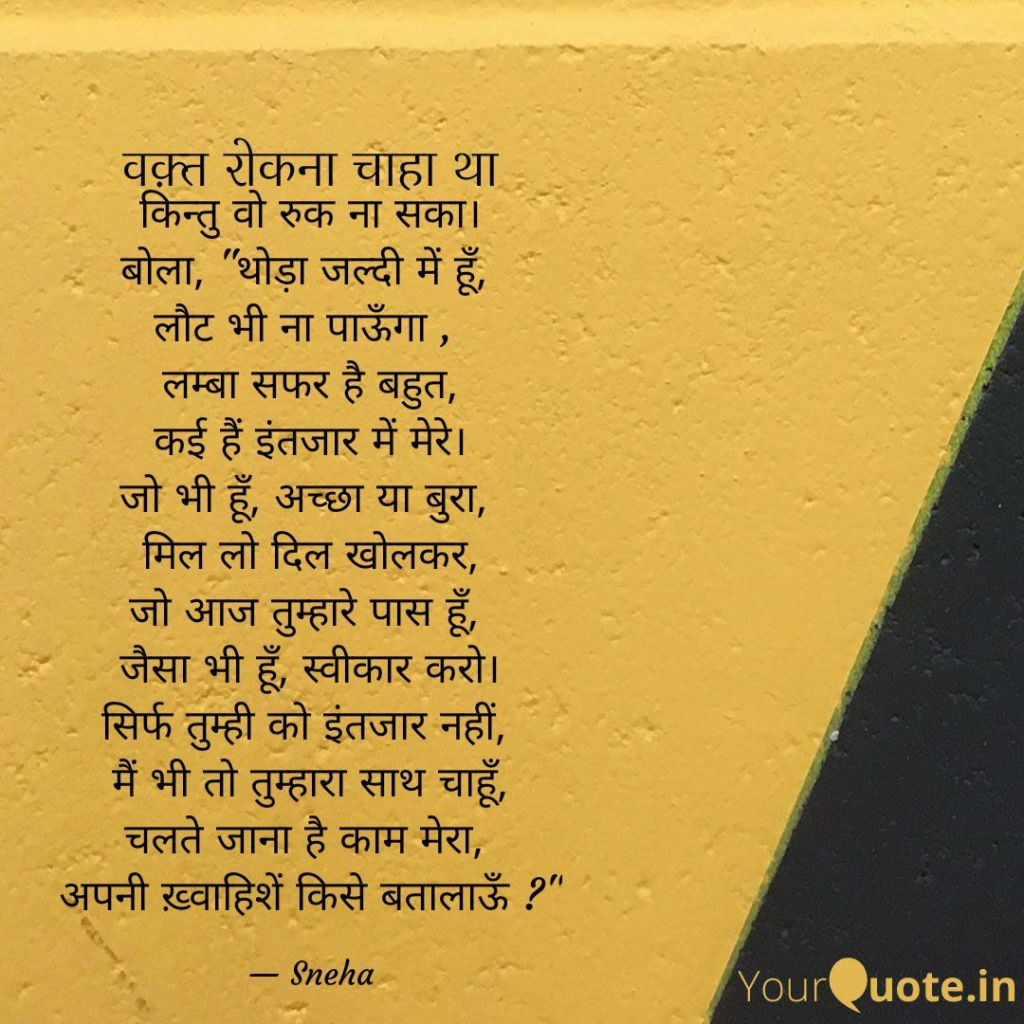 वक़्त रोकना चाहा था
किन्तु वो रुक ना सका।
बोला, "थोड़ा जल्दी में हूँ,
लौट भी ना पाऊँगा ,
लम्बा सफर है बहुत,
कई हैं इंतजार में मेरे।
जो भी हूँ, अच्छा या बुरा,
मिल लो दिल खोलकर,
जो आज तुम्हारे पास हूँ,
जैसा भी हूँ, स्वीकार करो।
सिर्फ तुम्ही को इंतजार नहीं,
मैं भी तो तुम्हारा साथ चाहूँ,
चलते जाना है काम मेरा,
अपनी ख़्वाहिशें किसे बतालाऊँ ?"
— Sneha
YourQuote.in